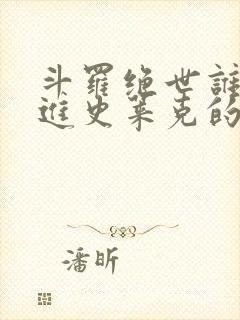 斗羅绝世誰
進史莱克的
潘昕